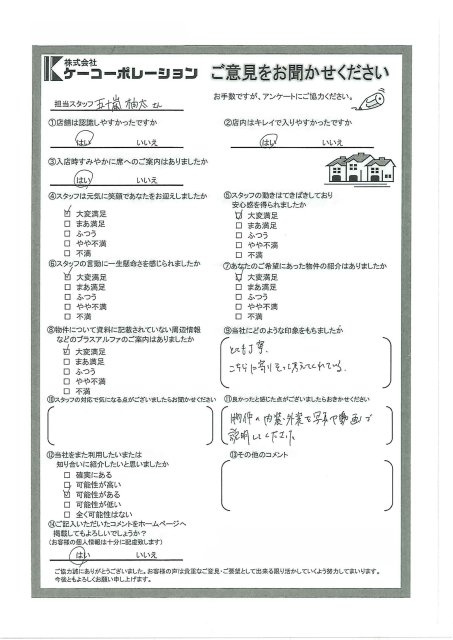 株式会社
ケーコーポレーション ご意見をお聞かせください
担当スタッフ 五十嵐 柚太 さん
お手数ですが、アンケートにご協力ください。
①店舗は認識しやすかったですか
はい いいえ
②店内はキレイで入りやすかったですか
はい いいえ
③入店時すみやかに席へのご案内はありましたか
はい いいえ
④スタッフは元気に笑顔であなたをお迎えしましたか
大変満足
まあ満足
ふつう
やや不満
不満
⑤スタッフの動きはてきぱきしており
安心感を得られましたか
大変満足
まあ満足
ふつう
やや不満
不満
⑥スタッフの言動に一生懸命さを感じられましたか
大変満足
まあ満足
ふつう
やや不満
不満
⑦あなたのご希望にあった物件の紹介はありましたか
大変満足
まあ満足
ふつう
やや不満
不満
⑧物件について資料に記載されていない周辺情報
などのプラスアルファのご案内はありましたか
大変満足
まあ満足
ふつう
やや不満
不満
⑨当社にどのような印象をもちましたか
とても丁寧、
こちらに寄りそって考えてくれている。
⑩スタッフの対応で気になる点がございましたらお聞かせください
⑪良かったと感じた点がございましたらおきかせください
物件の内装・外装を写真や動画で
説明してくださった
⑫当社をまた利用したいまたは
知り合いに紹介したいと思いましたか
確実にある
可能性が高い
可能性がある
可能性が低い
全く可能性はない
⑬その他のコメント
⑭ご記入いただいたコメントをホームページへ
掲載してもよろしいでしょうか？
(お客様の個人情報は十分に配慮致します)
はい いいえ
ご協力誠にありがとうございました。お客様の声は貴重なご意見・ご要望として出来る限り活かしていくよう努力してまいります。
今後ともよろしくお願い申し上げます。